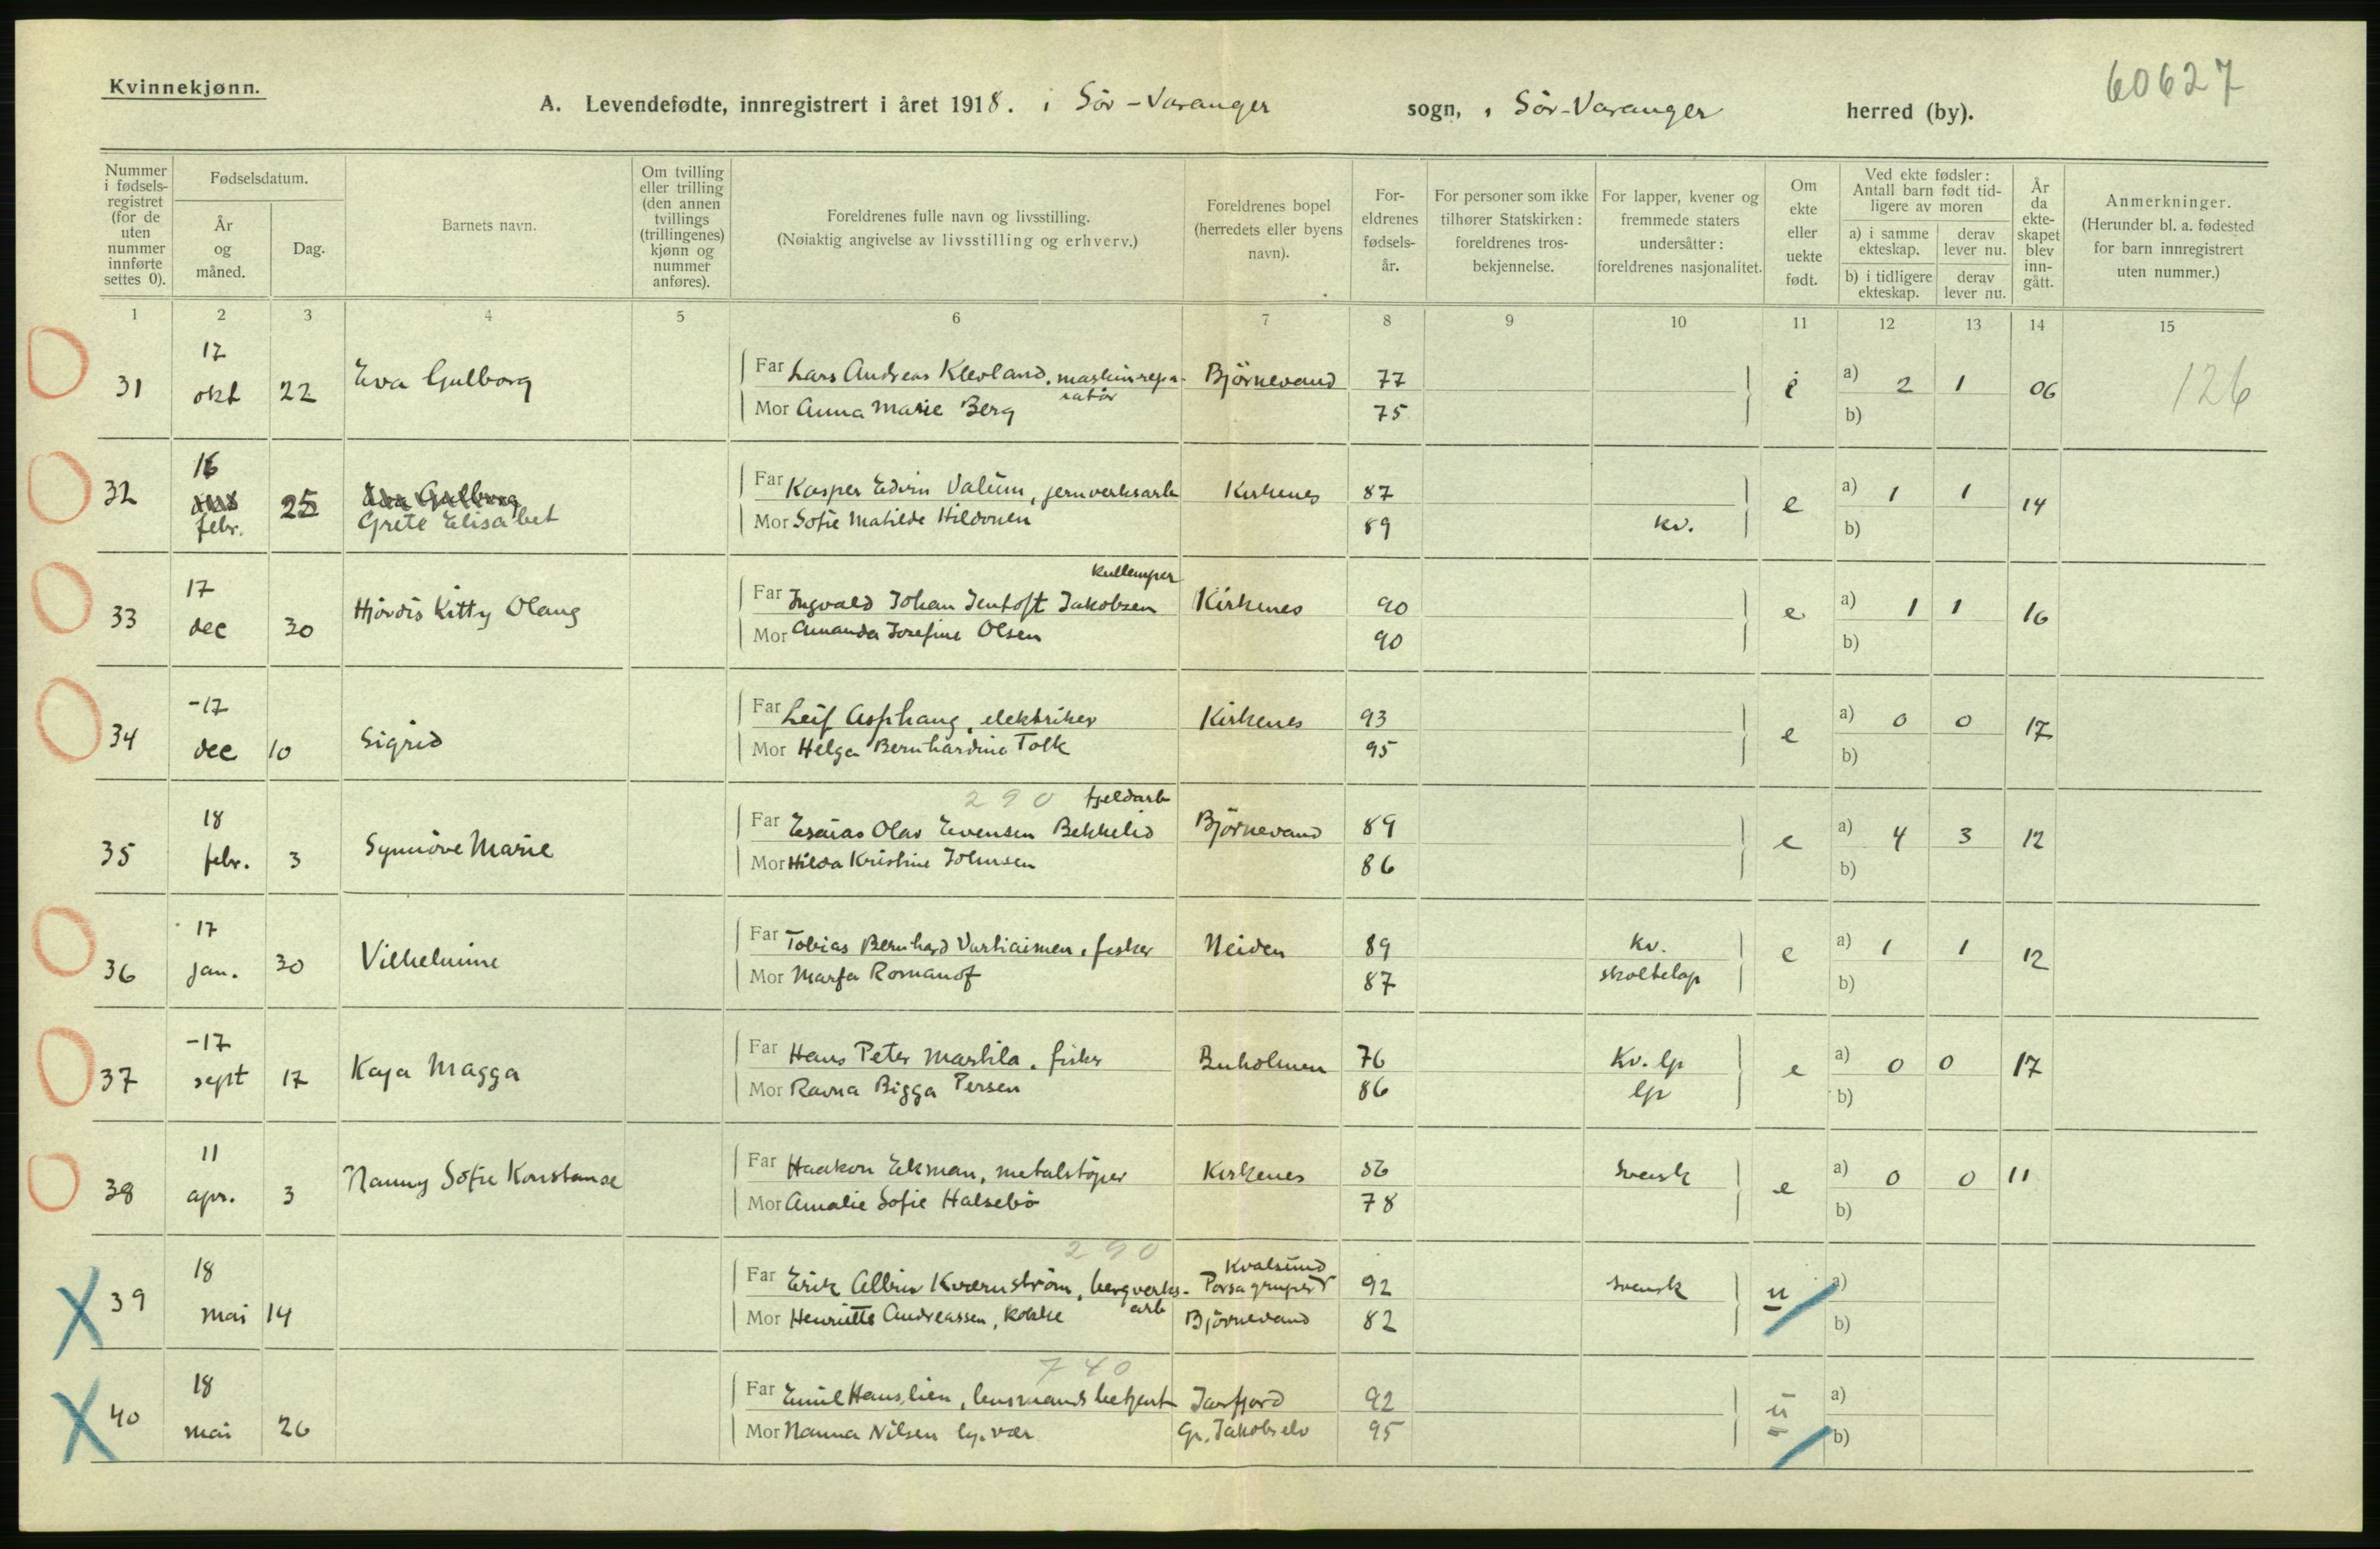 60627
Kvinnekjønn.
A. Levendefødte, innregistrert i året 1918. i Sör-Varanger sogn, i Sör-Varanger herred (by).
Nummer i fødselsregistret (for de uten nummer innførte settes 0).
Fødselsdatum.
År og måned.
Dag.
Barnets navn.
Om tvilling eller trilling (den annen tvillings (trillingenes) kjønn og nummer anføres).
Foreldrenes fulle navn og livsstilling.
(Nøiaktig angivelse av livsstilling og erhverv.)
Foreldrenes bopel (herredets eller byens navn).
Foreldrenes fødselsår.
For personer som ikke tilhører Statskirken: foreldrenes trosbekjennelse.
For lapper, kvener og fremmede staters undersåtter: foreldrenes nasjonalitet.
Om ekte eller uekte født.
Ved ekte fødsler: Antall barn født tidligere av moren
a) i samme ekteskap.
derav lever nu.
b) i tidligere ekteskap.
derav lever nu.
År da ekteskapet blev inngått.
Anmerkninger.
(Herunder bl. a. fødested for barn innregistrert uten nummer.)
1 2 3 4 5 6 7 8 9 10 11 12 13 14 15
31 17 okt 22 Eva Gulborg Far Lars Andreas Klevland, maskinreparatör Björnevand 77 a) 2 1 06 126
Mor Anna Marie Berg 75 b)
32 16 febr. 25 Grete Elisabet Far Kasper Edvin Valüm, jernverksarb Kirkenes 87 e a) 1 1 14
Mor Sofie Matilde Hildonen 89 kv. b)
kullemper
33 17 dec 30 Hjördis Kitty Olaug Far Ingvald Johan Jentoft Jakobsen Kirkenes 90 e a) 1 1 16
Mor Amanda Josefine Olsen 90 b)
34 -17 dec 10 Sigrid Far Leif Asphaug, elektriker Kirkenes 93 e a) 0 0 17
Mor Helga Bernhardine Tolk 95 b)
290 fjeldarb
35 18 febr. 3 Synnöve Marie Far Esaias Olav Evensen Bekkelid Björnevand 89 e a) 4 3 12
Mor Hilda Kristine Johnsen 86 b)
36 17 jan. 30 Vilhelmine Far Tobias Bernhard Vartiainen, fisker Neiden 89 kv. e a) 1 1 12
Mor Marfa Romanof 87 skoltelap b)
37 -17 sept 17 Kaja Magga Far Hans Peter Martila, fisker Buholmen 76 Kv. lp e a) 0 0 17
Mor Ravna Bigga Persen 86 lp b)
38 11 apr. 3 Nanny Sofie Konstanse Far Haakon Ekman, metalstöper Kirkenes 86 svensk e a) 0 0 11
Mor Amalie Sofie Halsebö 78 b)
290 Kvalsund
39 18 mai 14 Far Erik Albin Kværnström, bergverks-arb Porsagruper 92 svensk u a)
Mor Henriette Andreassen, kokke Björnevand 82 b)
740
40 18 mai 26 Far Emil Hans. lien, lensmandsbetjent Jarfjord 92 u a)
Mor Nanna Nilsen Gr. Jakobselv 95 b)